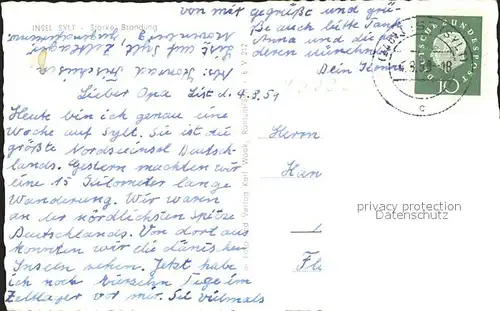 INSEL SYLT - Starke Brandung
von mir gegrüße und grü-
ße auch bitte Tante
Anna und die
deren
Dein Konrad
Abs: Konrad
List auf Sylt Zeltlager
Lieber Opa List d. 4.8.59
Heute bin ich genau eine
Woche auf Sylt. Sie ist die
größte Nordseeinsel Deutsch-
lands. Gestern machten wir
eine 15 Kilometer lange
Wanderung. Wir waren
an der nördlichsten Spitze
Deutschlands. Von dort aus
konnten wir die dänischen
Inseln sehen. Jetzt habe
ich noch vierzehn Tage im
Zeltlager vor mir. Sei vielmals
Foto und Verlag Karl Wock,
Herrn
Han
Fle
DEUTSCHE BUNDESPOST
10
c
privacy protection
Datenschutz